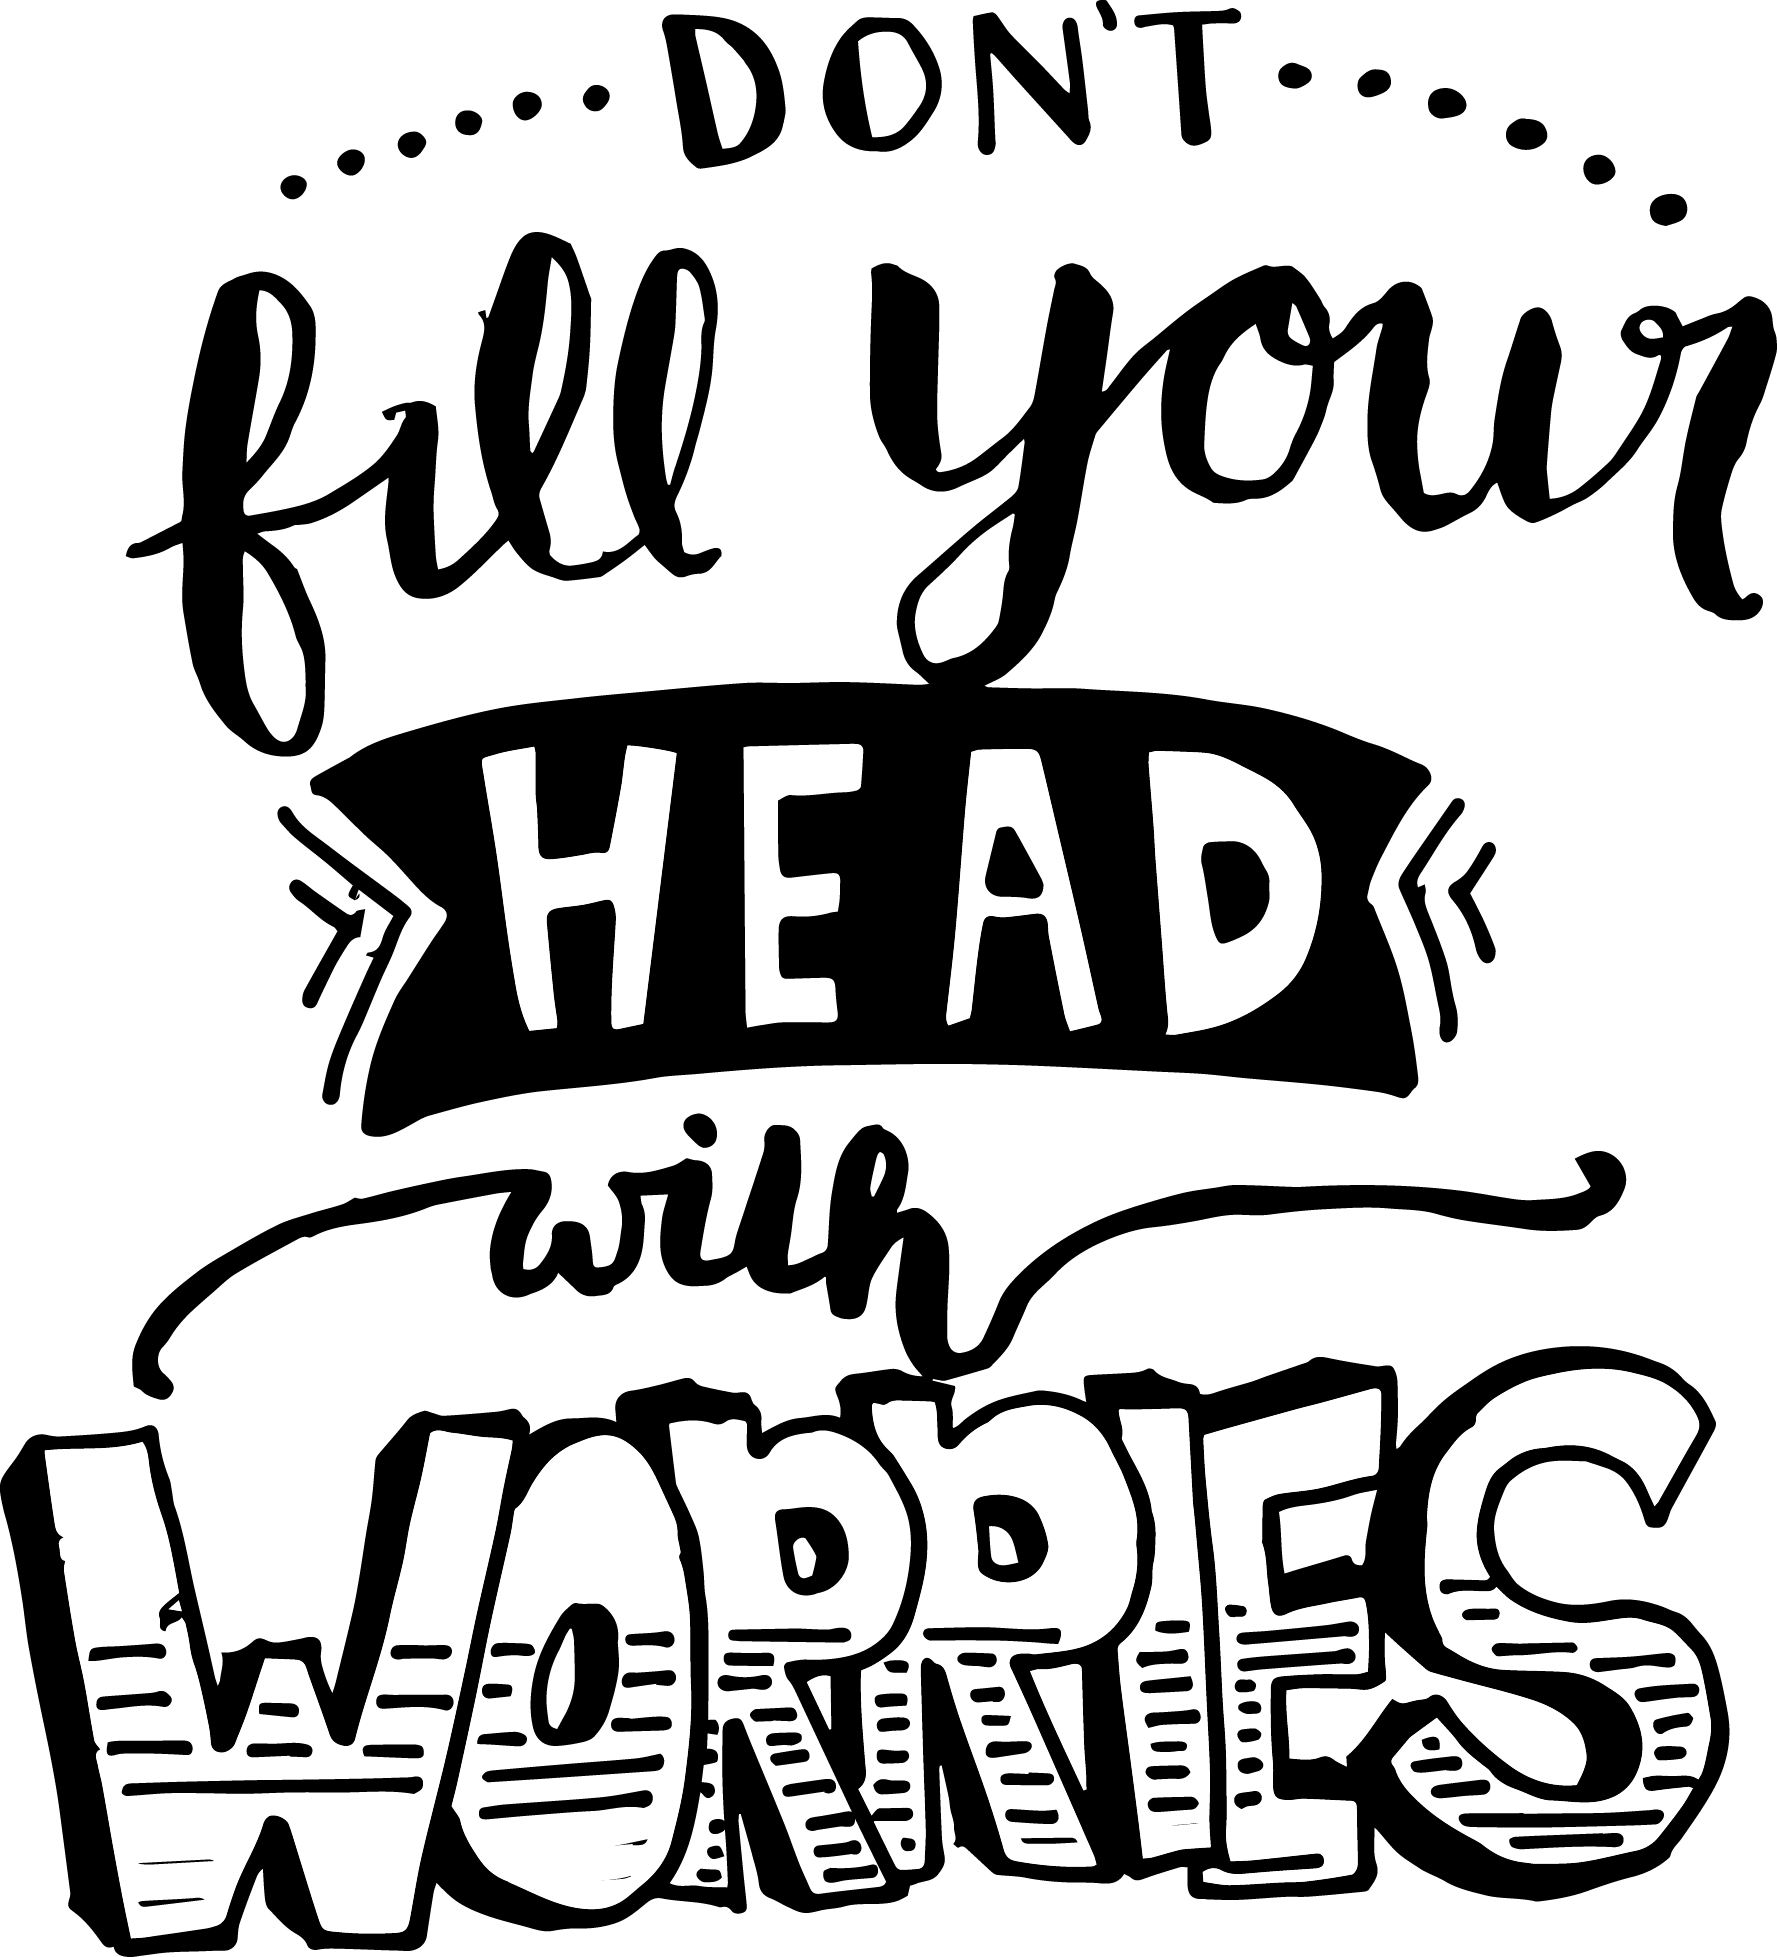 DON'T
fill your
HEAD
with
WORRIES